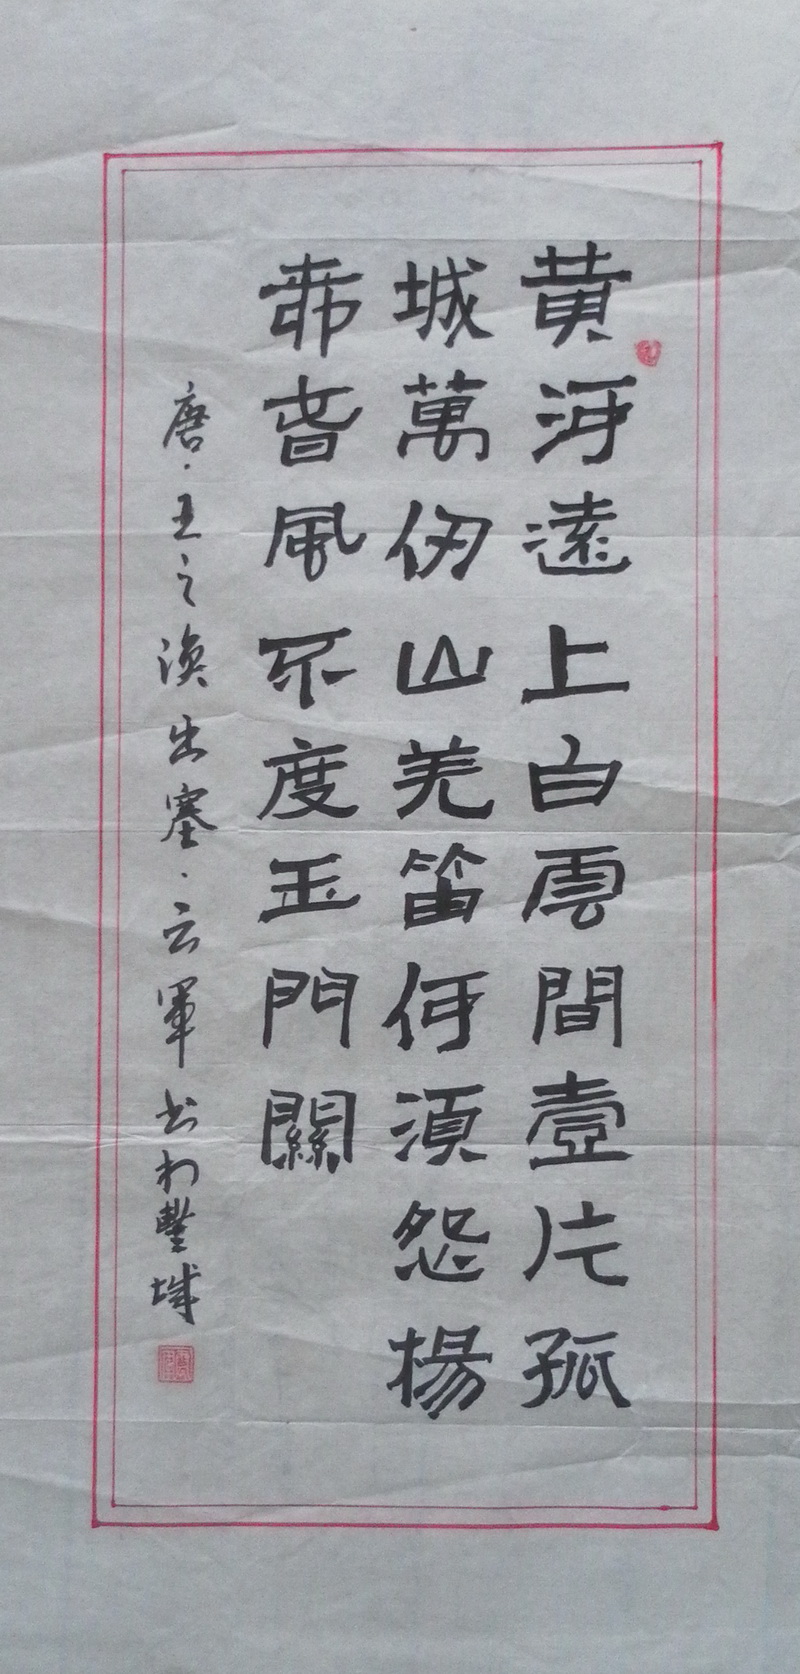 黄河遠上白雲間壹片孤
城萬仞山羌笛何須怨楊
桺春風不度玉門關
唐·王之渙出塞·云軍书於豐城